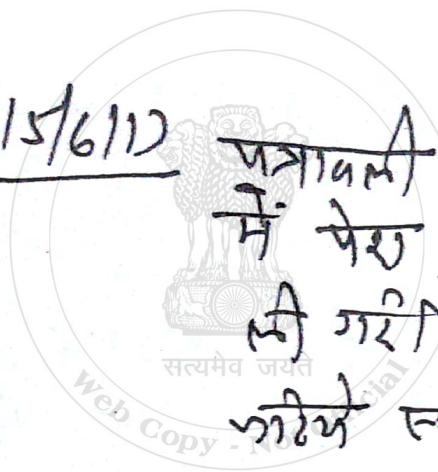 15/6/17 पत्रावली
में पेश
ली गई
सत्यमेव जयते
Web Copy - Not Official